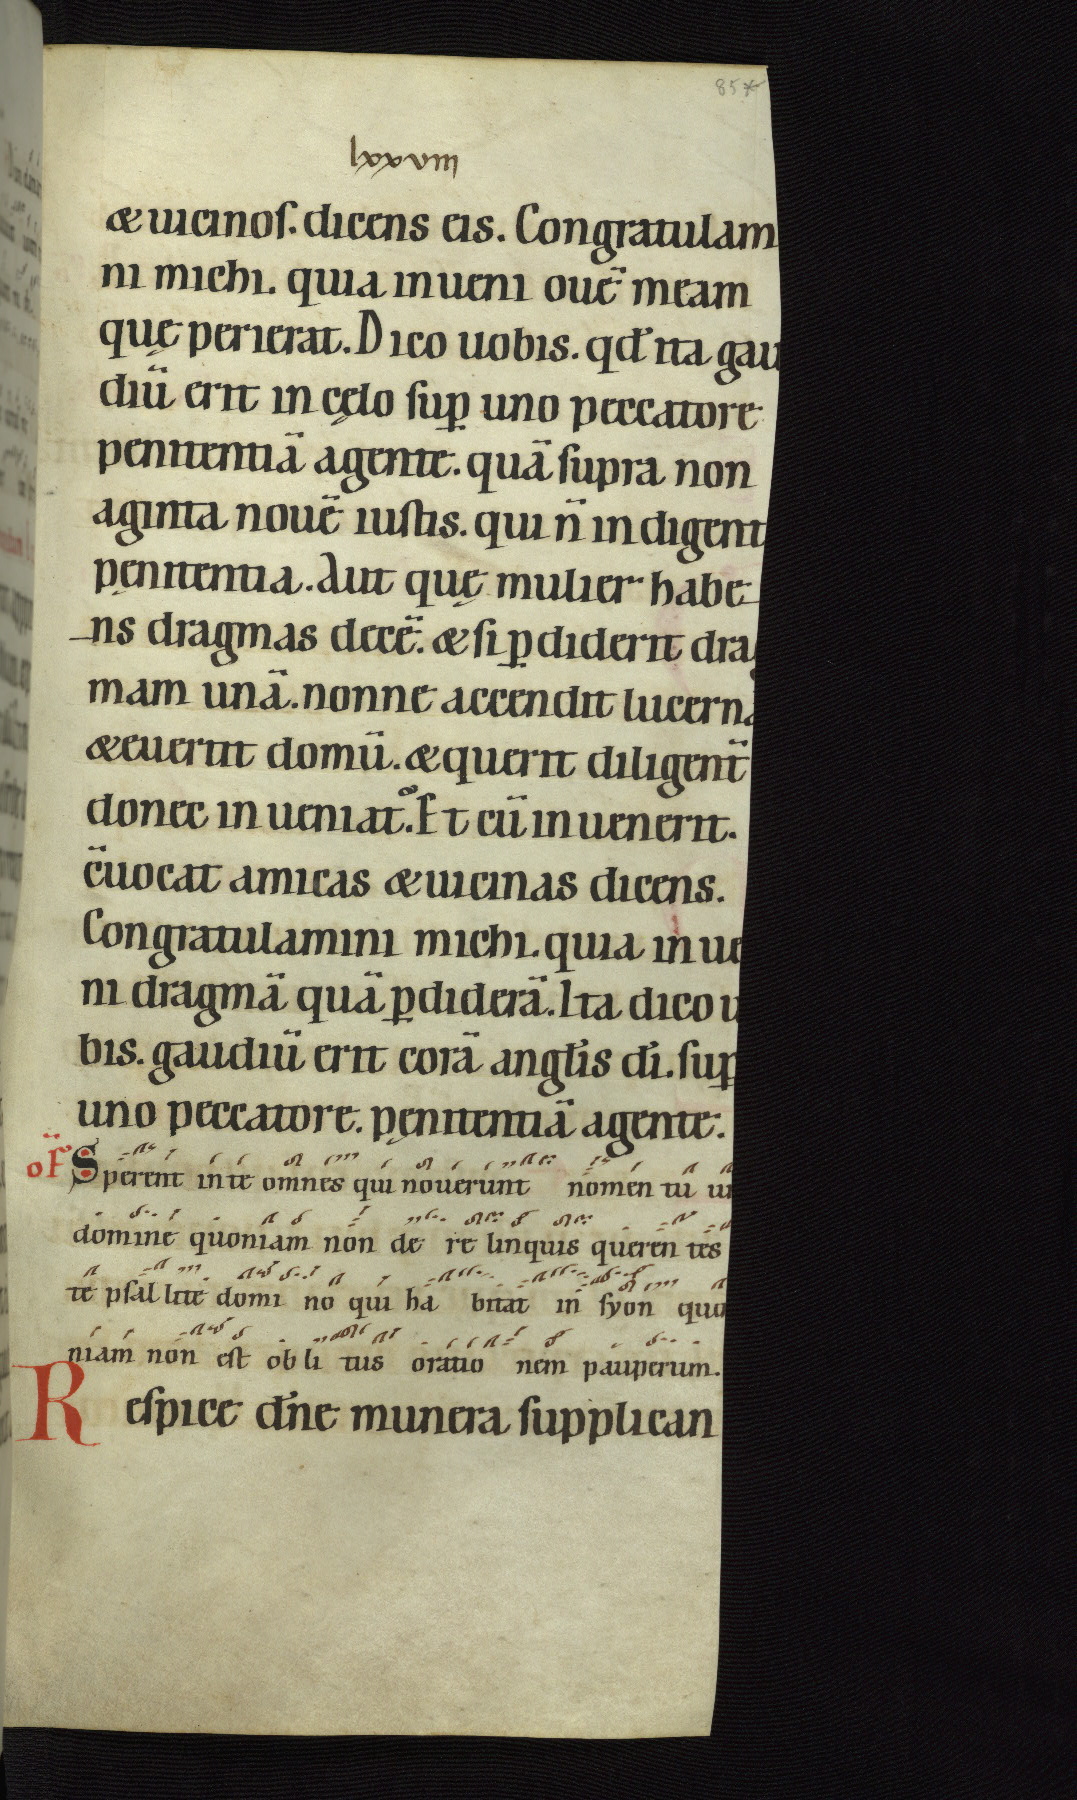 85*
lxxviii
& uicinoſ. dicens eis. Congratulam
ni michi. quia inueni ouē meam
quę perierat. Dico uobis. qđ ita gau
diū erit in cęlo ſuꝑ uno peccatore
penitentiā agente. quā ſupra non
aginta nouē iuſtis. qui n̄ indigent
pęnitentia. Aut quę mulier habe
ns dragmas decē. & ſi ꝑdiderit drag
mam unā. nonne accendit lucerna
& euertit domū. & querit diligent̄
donec inueniat. Et cū inuenerit.
c̄uocat amicas & uicinas dicens.
Congratulamini michi. quia inue
ni dragmā quā ꝑdiderā. Ita dico u
bis. gaudiū erit corā angl̄is dī. ſuꝑ
uno peccatore. pęnitentiā agente.
oF̄ Sperent in te omnes qui nouerunt nomen tuū
domine quoniam non de re linquis queren tes
te psal lite domi no qui ha bitat in ſyon quo
niam non est ob li tus oratio nem pauperum.
Reſpice dn̄e munera ſupplican